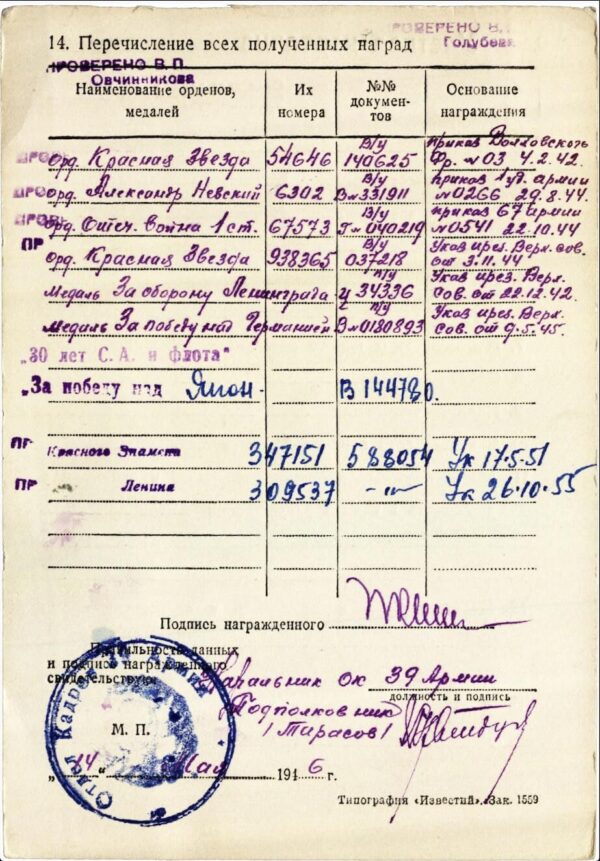 ПРОВЕРЕНО В. П.
Голубева
14. Перечисление всех полученных наград
ПРОВЕРЕНО В. П.
Овчинникова
Наименование орденов, медалей | Их номера | №№ документов | Основание награждения
ПРОВЕ орд. Красная Звезда | 54646 | В/у 140625 | приказ Волховского Фр. №03 4.2.42.
ПРОВЕ орд. Александр Невский | 6302 | В№331911 | приказ Луд. армии №0266 29.8.44.
ПРОВЕ орд. Отеч. война 1 ст. | 67573 | В/у Г№040219 | приказ 67 армии №0541 22.10.44
ПР орд. Красная Звезда | 938365 | В/у 037218 | Указ през. Верх. сов. от 3.11.44
медаль За оборону Ленинграда | п/у 34336 | Указ през. Верх. Сов. от 22.12.42.
медаль За победу над Германией | п/у В№0180893 | Указ през. Верх. Сов. от 9.5.45.
„30 лет С. А. и флота"
„За победу над Япон. | В 144780.
ПР Красного Знамени | 347151 | 588054 | Ук 17·5·51
ПР Ленина | 309537 | –〃– | Ук 26·10·55
Подпись награжденного
Правильность данных
и подписи награжденного
свидетельствую
Начальник ОК 39 Армии
должность и подпись
Подполковник
/Тарасов/
Отдел Кадров 39 Армии
М. П.
„14" Мая 1946 г.
Типография «Известий». Зак. 1559